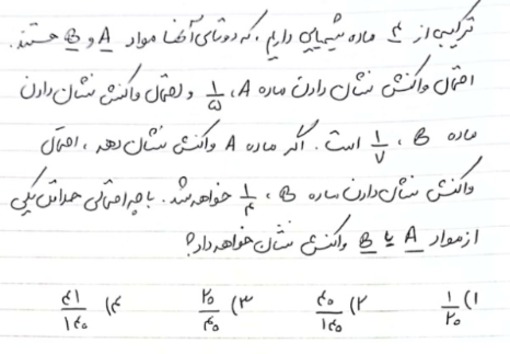 ترکیبی از ۴ ماده شیمیایی داریم، که دوتای آنها مواد A و B هستند.
احتمال واکنش نشان دادن ماده A، ۱/۵ و احتمال واکنش نشان دادن
ماده B، ۱/۷ است. اگر ماده A واکنش نشان دهد، احتمال
واکنش نشان دادن ماده B، ۱/۴ خواهد شد. با چه احتمالی حداقل یکی
از مواد A یا B واکنش نشان خواهد داد؟
۱) ۱/۲۰ ۲) ۴۰/۱۴۰ ۳) ۲۰/۴۰ ۴) ۴۱/۱۴۰